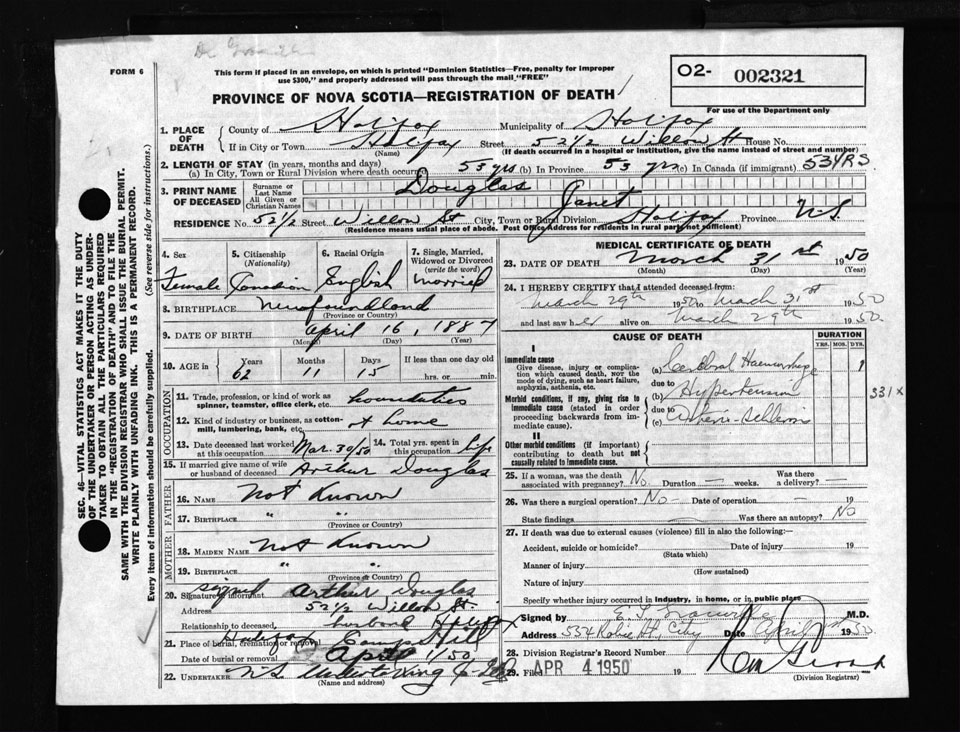 FORM 6
This form if placed in an envelope, on which is printed "Dominion Statistics—Free, penalty for improper
use $300," and properly addressed will pass through the mail "FREE"
PROVINCE OF NOVA SCOTIA—REGISTRATION OF DEATH
O2- 002321
For use of the Department only
SEC. 46—VITAL STATISTICS ACT MAKES IT THE DUTY
OF THE UNDERTAKER OR PERSON ACTING AS UNDER-
TAKER TO OBTAIN ALL THE PARTICULARS REQUIRED
IN THE "REGISTRATION OF DEATH" AND TO FILE THE
SAME WITH THE DIVISION REGISTRAR WHO SHALL ISSUE THE BURIAL PERMIT.
WRITE PLAINLY WITH UNFADING INK. THIS IS A PERMANENT RECORD.
Every item of information should be carefully supplied. (See reverse side for instructions.)
1. PLACE OF DEATH
County of Halifax Municipality of Halifax
If in City or Town Halifax Street 52 1/2 Willow St House No.
(Name) (If death occurred in a hospital or institution, give the name instead of street and number)
2. LENGTH OF STAY (in years, months and days)
(a) In City, Town or Rural Division where death occurred 53 yrs (b) In Province 53 yrs (c) In Canada (if immigrant) 53 YRS
3. PRINT NAME OF DECEASED
Surname or Last Name Douglas
All Given or Christian Names Janet
RESIDENCE No. 52 1/2 Street Willow St City, Town or Rural Division Halifax Province N.S.
(Residence means usual place of abode. Post Office Address for residents in rural parts not sufficient)
4. Sex Female
5. Citizenship (Nationality) Canadian
6. Racial Origin English
7. Single, Married, Widowed or Divorced (write the word) Married
8. BIRTHPLACE Newfoundland
(Province or Country)
9. DATE OF BIRTH April 16, 1887
(Month) (Day) (Year)
10. AGE in Years 62 Months 11 Days 15 If less than one day old
hrs. or min.
OCCUPATION
11. Trade, profession or kind of work as
spinner, teamster, office clerk, etc.
12. Kind of industry or business, as cotton-
mill, lumbering, bank, etc. at home
13. Date deceased last worked at this occupation Mar. 30/50
14. Total yrs. spent in this occupation life
15. If married give name of wife or husband of deceased Arthur Douglas
FATHER
16. NAME Not Known
17. BIRTHPLACE " "
(Province or Country)
MOTHER
18. MAIDEN NAME Not Known
19. BIRTHPLACE " "
(Province or Country)
20. Signature of informant signed Arthur Douglas
Address 52 1/2 Willow St.
Relationship to deceased husband Halifax
21. Place of burial, cremation or removal Halifax Camp Hill
Date of burial or removal April 1/50
22. UNDERTAKER N.S. Undertaking Co
(Name and address)
MEDICAL CERTIFICATE OF DEATH
23. DATE OF DEATH March 31st 1950
(Month) (Day) (Year)
24. I HEREBY CERTIFY that I attended deceased from:
March 29th 1950 to March 31st 1950
and last saw her alive on March 29th 1950.
CAUSE OF DEATH
DURATION
YRS. MOS. DYS.
I
Immediate cause
Give disease, injury or complica-
tion which caused death, NOT the
mode of dying, such as heart failure,
asphyxia, asthenia, etc.
(a) Cerebral Haemorrhage
due to
Morbid conditions, if any, giving rise to
immediate cause (stated in order
proceeding backwards from im-
mediate cause).
(b) Hypertension
due to
(c) Arterio-Sclerosis
331 X
II
Other morbid conditions (if important)
contributing to death but not
causally related to immediate cause.
25. If a woman, was the death associated with pregnancy? No. Duration — weeks. Was there a delivery? —
26. Was there a surgical operation? No — Date of operation — 19
State findings — Was there an autopsy? No
27. If death was due to external causes (violence) fill in also the following:
Accident, suicide or homicide? Date of injury 19
(State which)
Manner of injury
(How sustained)
Nature of injury
Specify whether injury occurred in industry, in home, or in public place
Signed by M.D.
Address Robie St, City Date April 1950
28. Division Registrar's Record Number
29. Filed APR 4 1950 19
(Division Registrar)